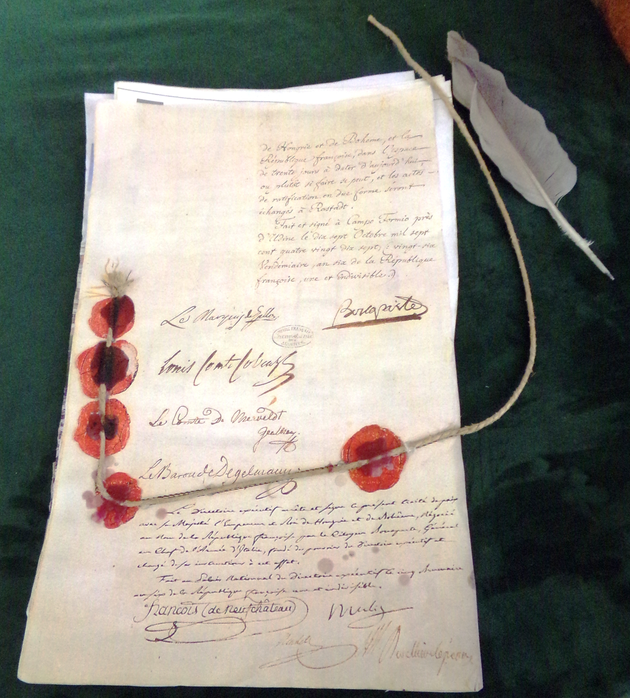 de Hongrie et de Bohême, et la
République française, dans l'espace
de trente jours à dater d'aujourd'hui
ou plutôt si faire se peut, et les actes
de ratification en due forme seront
échangés à Rastadt.
Fait et signé à Campo Formio près
d'Udine le dix sept Octobre mil sept
cent quatre vingt dix sept, vingt-six
Vendémiaire, an six de la République
française, une et indivisible.
Le Marquis de Gallo
Bonaparte
Louis Comte Cobenzl
Le Comte de Merveldt
Le Baron de Degelmann
Le Directoire exécutif arrête et signe le présent traité de paix
avec sa Majesté l'Empereur et Roi de Hongrie et de Bohême, négocié
au nom de la République française, par le Citoyen Bonaparte, Général
en Chef de l'Armée d'Italie, fondé de pouvoirs du Directoire exécutif et
chargé de ses instructions à cet effet.
Fait au Palais National du Directoire exécutif le cinq Brumaire
an six de la République française une et indivisible.
François (de neufchâteau)
Merlin